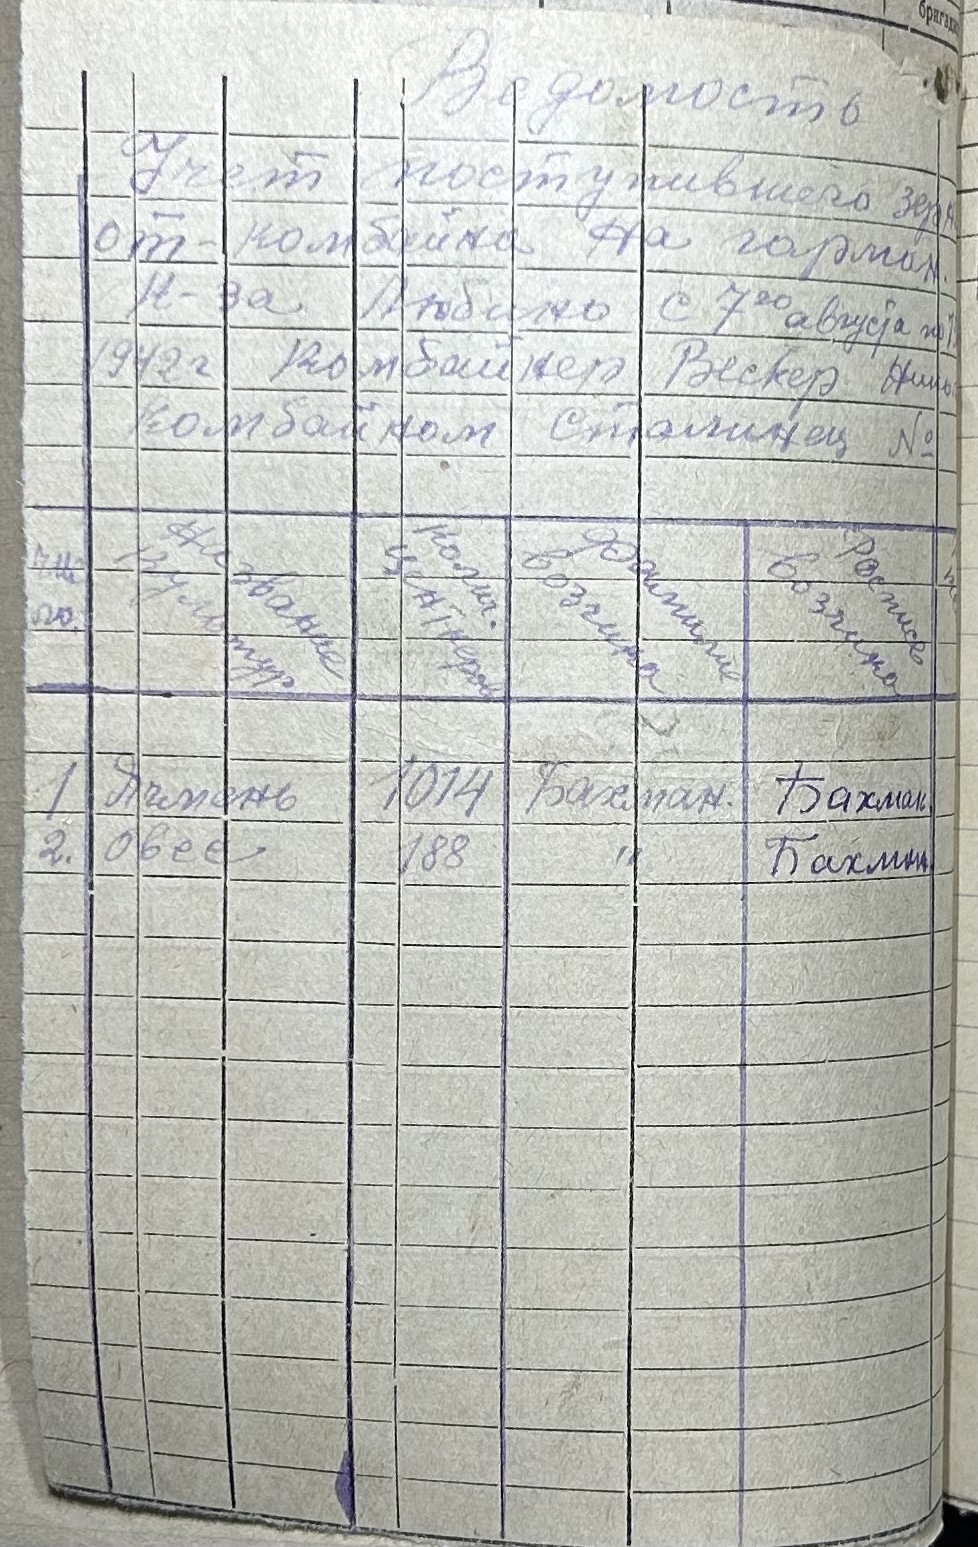 бригад
Ведомость
Учет поступившего зерн
от-комбайна на гарман.
К-за Любино с 7го августа по
1942г Комбайнер Вескер
Комбайном Сталинец №
чис
ло.
Название
культур
Колич.
центнера
Фамилие
возчика
Роспись
возчика
1 Ячмень 1014 Бахман. Бахман
2. Овес 188 " Бахман